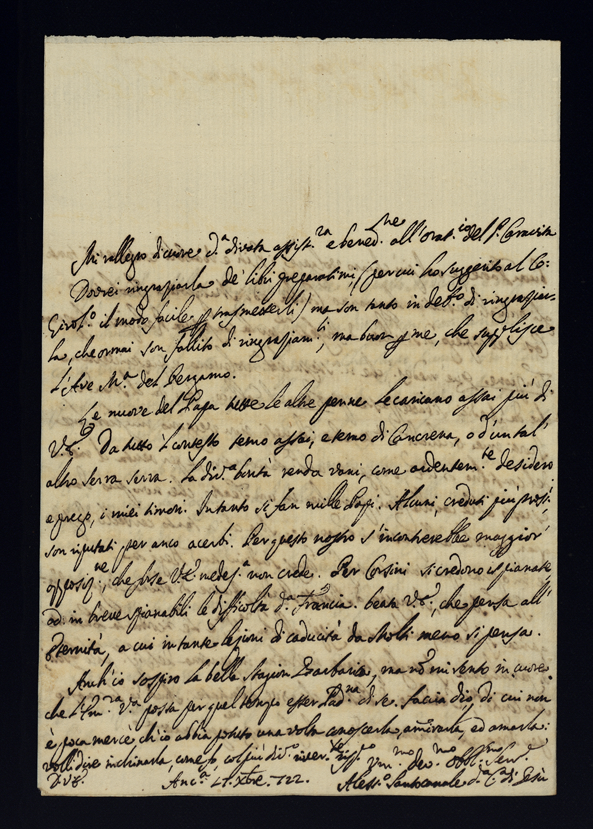 Mi rallegro di cuore d.ª divota assist.za e bened.ne all' Orat.io del P. Gravina
Dovrei ringraziarla de' libri preparatimi, (per cui ho suggerito al C:
Girol.º il modo facile p trasmetterli) ma son tanto in deb.º di ringraziar-
la, che ormai son fallito di ringraziam.ti, ma buon p me, che supplisce
l'Ave M.ª del Bergamo.
Le nuove del Papa tutte le altre penne le caricano assai più di
V.R. Da tutto il contesto temo assai, e temo di Cancrena, o d'un tal'
altro serra serra. La div.ª bontà renda vani, come ardentem.te desidero
e prego, i miei timori. Intanto si fan mille Papi. Alcuni creduti più pross.i
son riputati per anco acerbi. Per questo nostro s'incontrerebbe maggior
opposiz.ne, che forse V.R. medes.ª non crede. Per Corsini si credono ispianate
od in breve spianabili le difficoltà d.ª Francia. beata V.R., che pensa all'
Eternità, a cui in tante lezioni di caducità da molti meno si pensa.
Anch'io sospiro la bella stagion, ma nõ mi sento in cuore
che l'Em.za V.ª possa per quel tempo esser Pad.na di se. faccia Dio, di cui non
è poca mercè, ch'io abbia potuto una volta conoscerla, ammirarla, ed amarla:
volli dire inchinarla, come fo, col più div.º
D.V.R. Anc.ª Xbre. 722. Um.mo dev.mo obbl.mo Serv.e
Aless.º Santocanale d.ª C.ª di Gesù